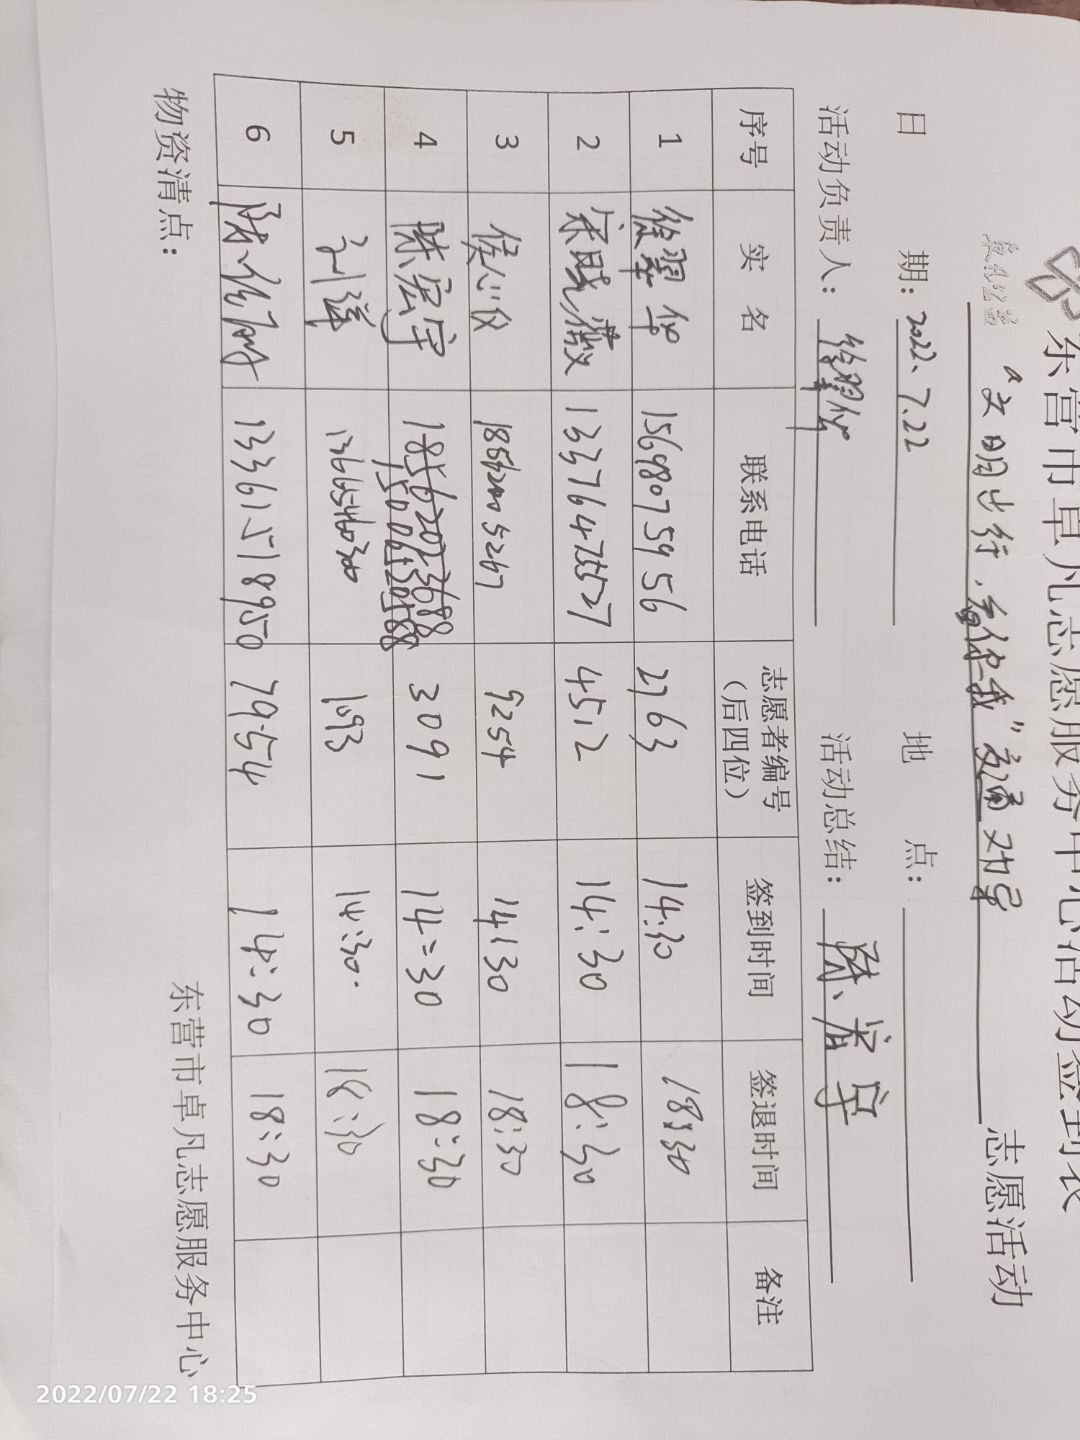 东营市卓凡志愿服务中心活动签到表
卓凡公益
“文明出行,有你有我”交通劝导 志愿活动
日 期: 2022.7.22 地 点:
活动负责人: 徐翠华 活动总结: 陈宏宇
序号 实 名 联系电话 志愿者编号(后四位) 签到时间 签退时间 备注
1 徐翠华 15698075956 2763 14:30 18:30
2 宋晓薇 13376472527 4512 14:30 18:30
3 侯心仪 18562005267 9254 14:30 18:30
4 陈宏宇 3091 14:30 18:30
5 刘洋 1093 14:30 18:30
6 13361518950 7954 14:30 18:30
物资清点:
东营市卓凡志愿服务中心
2022/07/22 18:25